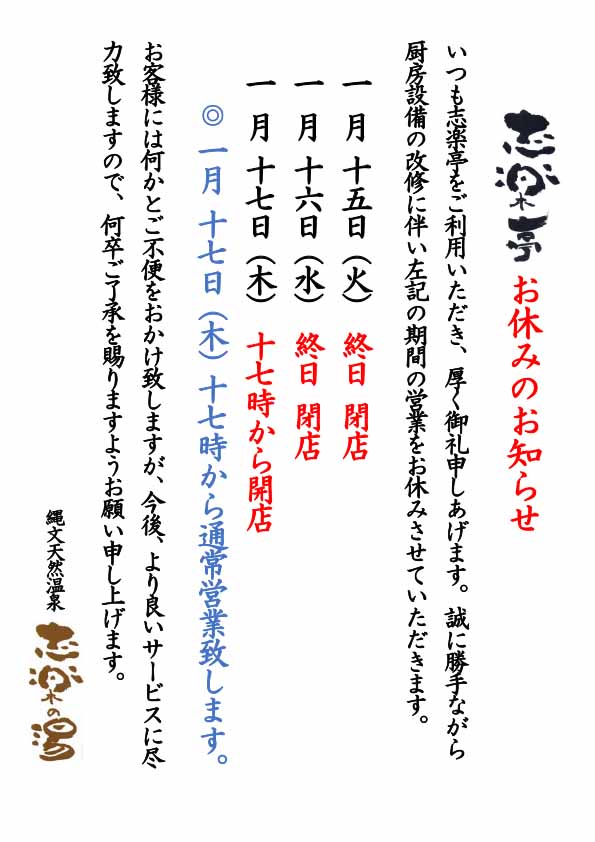 志楽亭 お休みのお知らせ
いつも志楽亭をご利用いただき、厚く御礼申しあげます。誠に勝手ながら
厨房設備の改修に伴い左記の期間の営業をお休みさせていただきます。
一月 十五日(火) 終日 閉店
一月 十六日(水) 終日 閉店
一月 十七日(木) 十七時から開店
◎一月 十七日(木)十七時から通常営業致します。
お客様には何かとご不便をおかけ致しますが、今後、より良いサービスに尽
力致しますので、何卒ご了承を賜りますようお願い申し上げます。
縄文天然温泉 志楽の湯